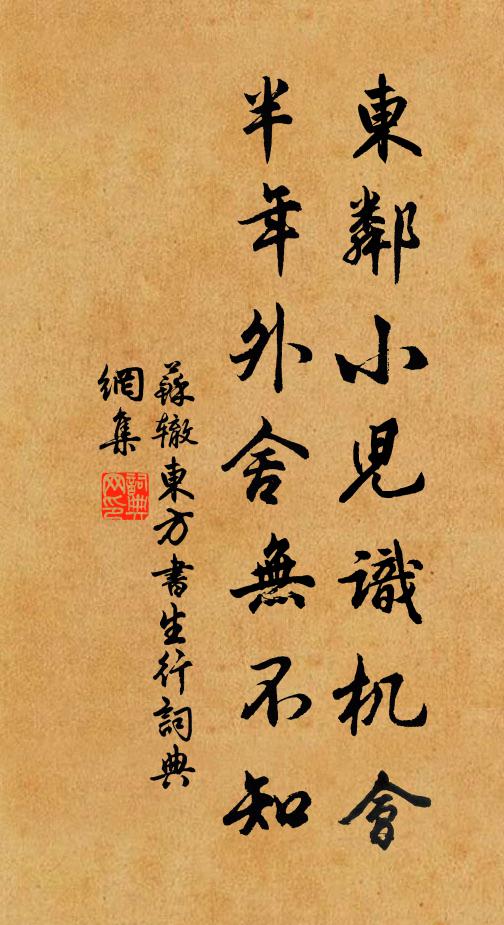 東鄰小児識机會
半年外舍無不知
蘇辙東方書生行詞典
網集
詞典
网印